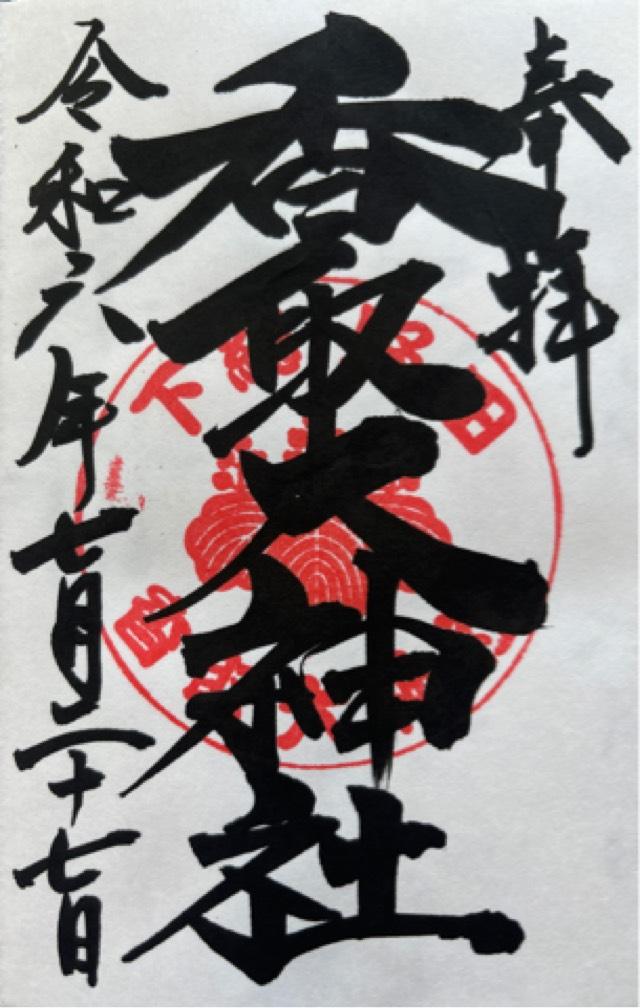 奉拝
香取大神社
令和六年七月二十七日